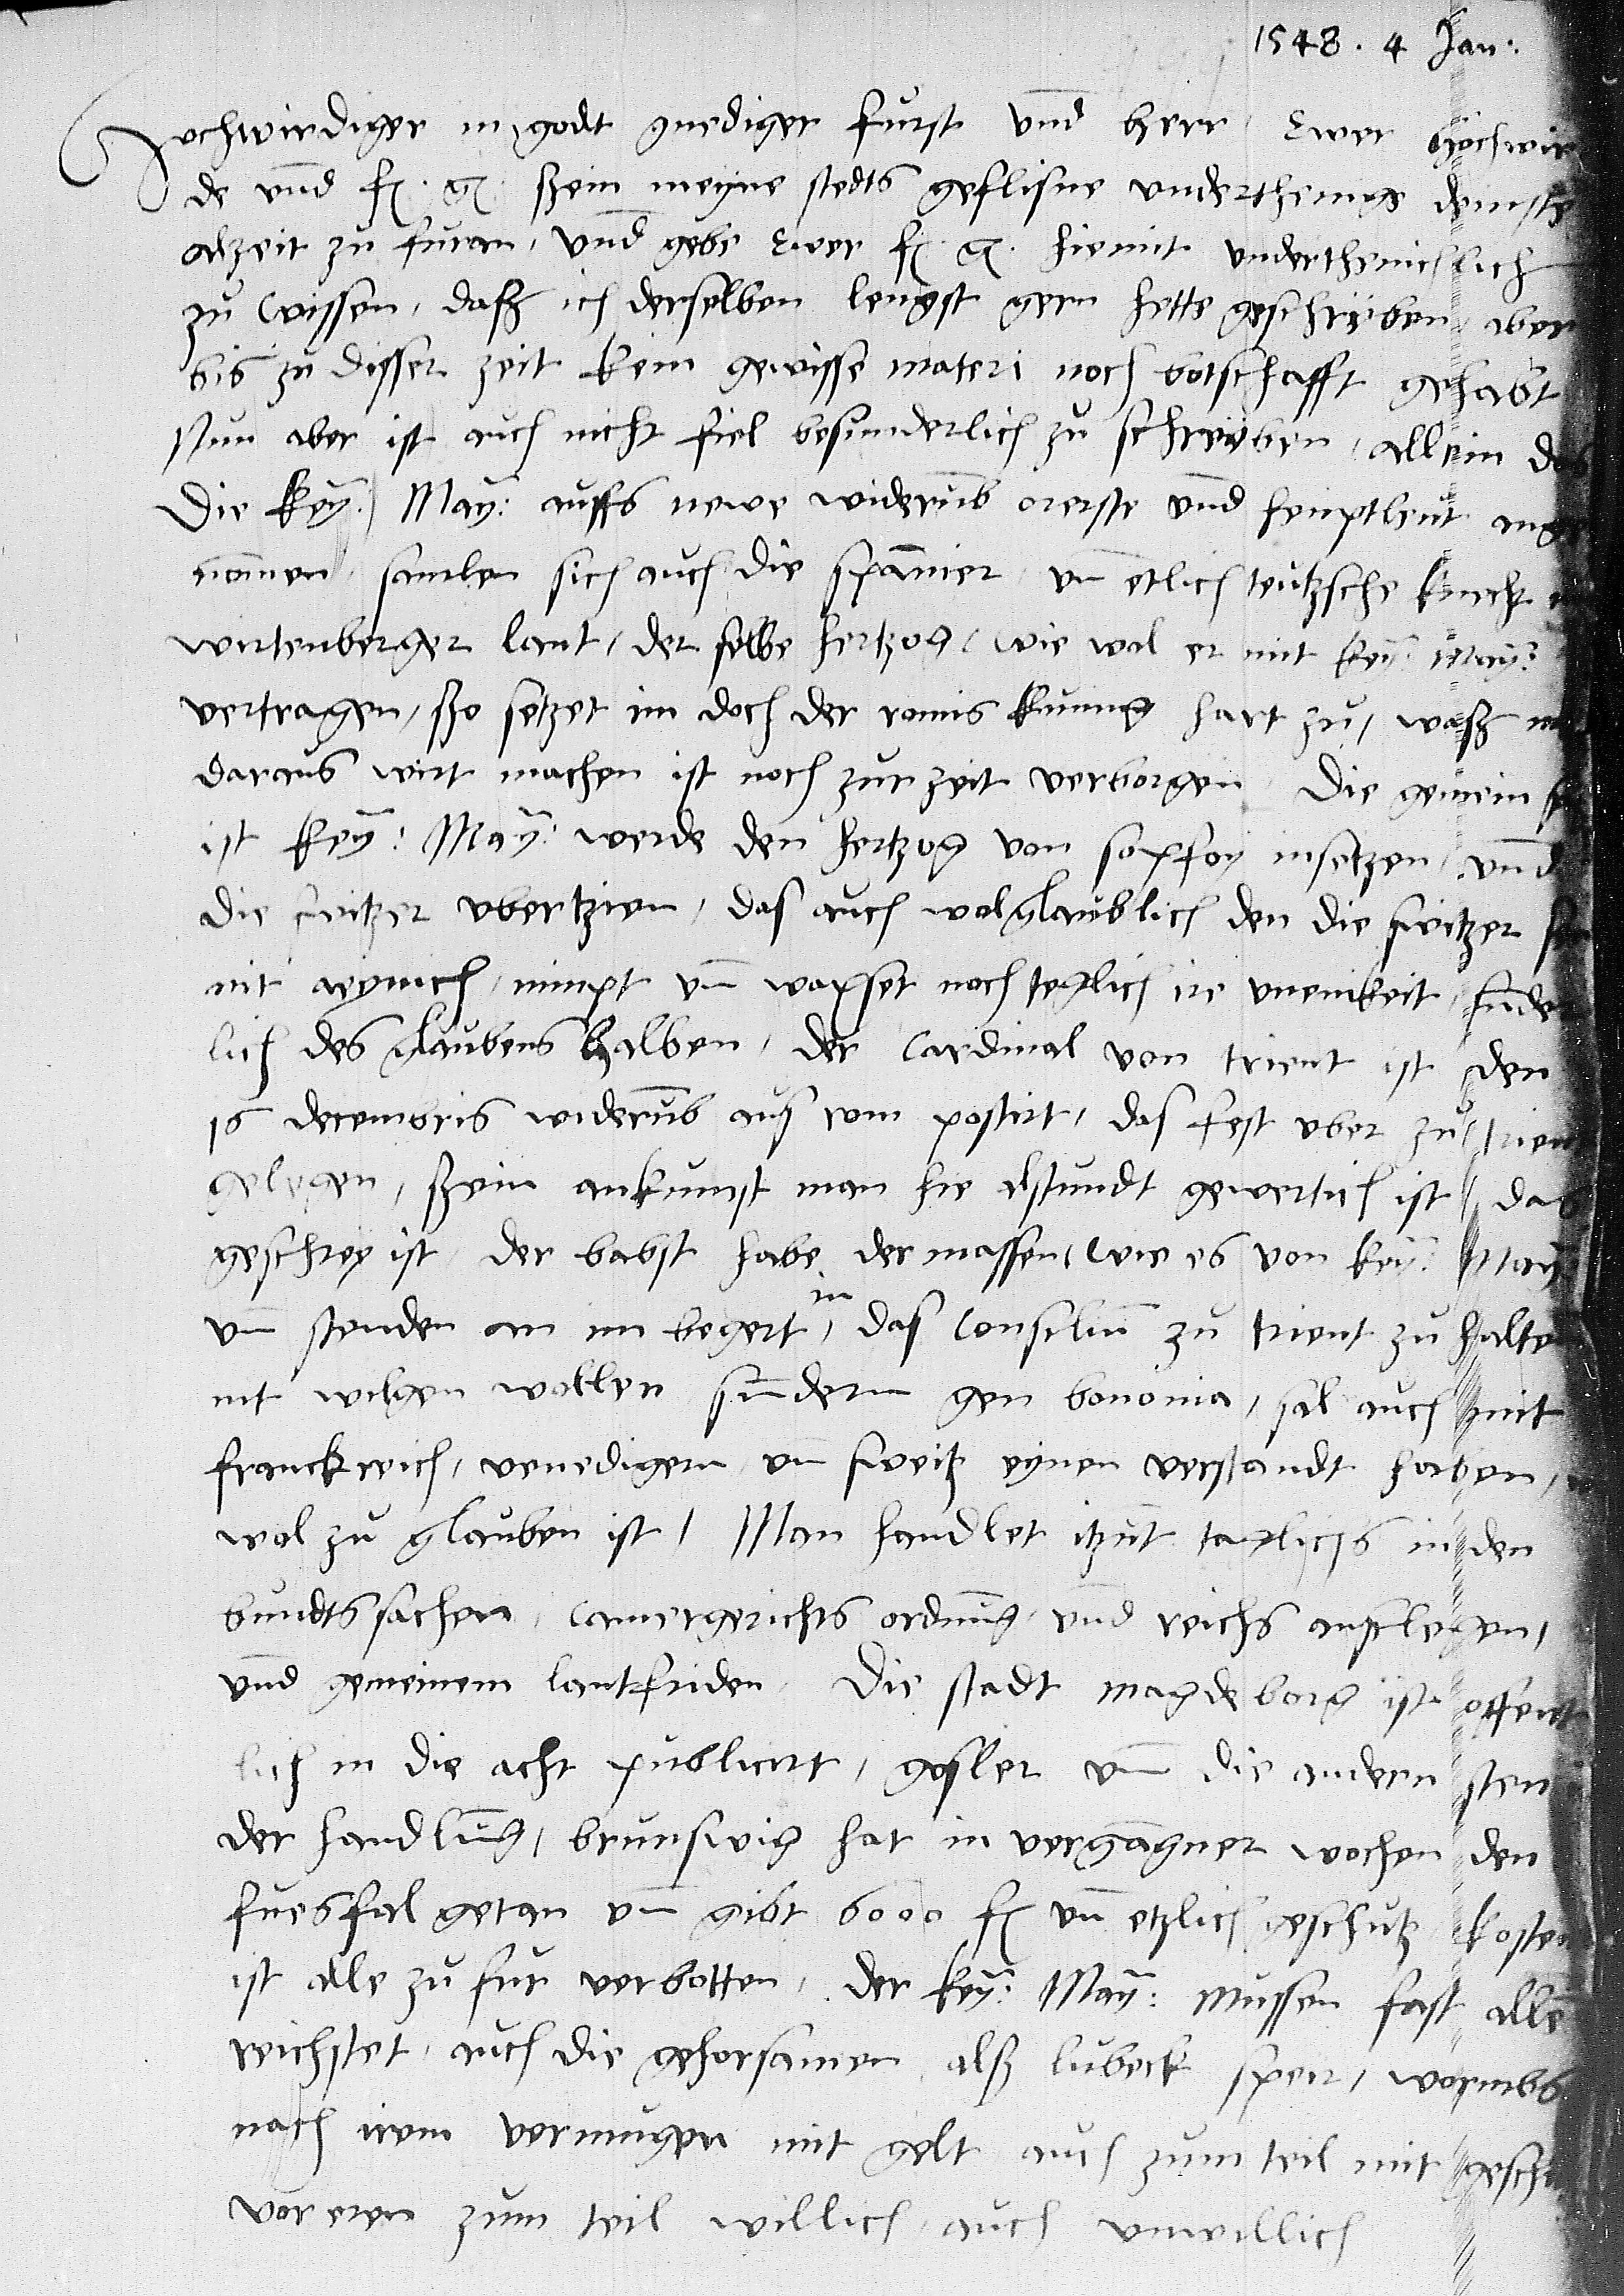 1548. 4 Jan:
Hochwirdiger in godt gnediger furst und herr, Ewer hochwir
de und f. g. szein meyne stedts geflisne underthenige deinste
alzeit zu furan, und gebe Ewer f. g. hiemit underthenichlich
zu wissen, dasz ich derselben lengst gern hette geschriben, aber
bis zu disser zeit kein gewisse materi noch botschafft gehabt
Nun aber ist auch nicht fiel besunderlich zu schreyben, allein das
die key: May: auffs newe widerumb overste und heuptleut ange
nomen, samlen sich auch die spannier, un etlich teutzsche knecht
wirtenberger lant, der selbe hertzog, wie wol er mit key: May:
vertragen, szo setzet im doch der romis kuning hart zu, wasz
daraus wirt machen ist noch zur zeit verborgen, Die gemein
ist key: May: werde den hertzog von sophoy insetzen, und
die switzer ubertzien, das auch wol glaublich den die switzer
nit eynich, nimpt un wapset noch teglich ire uneinikeit, sunder
lich des glaubens halben, der Cardinal von trient ist den
16 decembris widerumb aus rom postirt, das fest uber zu trient
gelegen, szein ankumst man hie alstundt gewertich ist, das
geschrey ist, der babst habe dermassen, wie es von key: May:
un stenden an im begert, in das Consilium zu trient zu halten
nit wilgen wollen sundern gen bononia, sal auch mit
franckreich, venedigern un sweitz eynen verstandt haben,
wol zu glauben ist, Man handlet itzunt taglichs in den
bundtssachen, Camergerichts ordnung und reichs anslegen,
und gemeinem lantfriden, Die stadt magdeborg ist offent
lich in die acht publicirt, gosler un die andern sten
der handlung, brunswig hat in vergangner wochen den
fuesfal getan un gibt 6000 f un etzlich geschutz kosten
ist alle zu fur verbotten, der key: May: mussen fast alle
reichstet, auch die gehorsamen alsz lubeck speir, wormbs
nach irem vermugen mit gelt auch zum teil mit
vor eren zum teil willich, auch unwillich